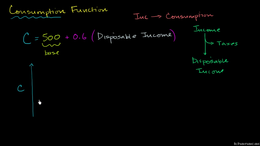 Consumption Function
Inc → Consumption
C = 500 + 0.6 (Disposable Income)
base
Income
Taxes
Disposable
Income
C